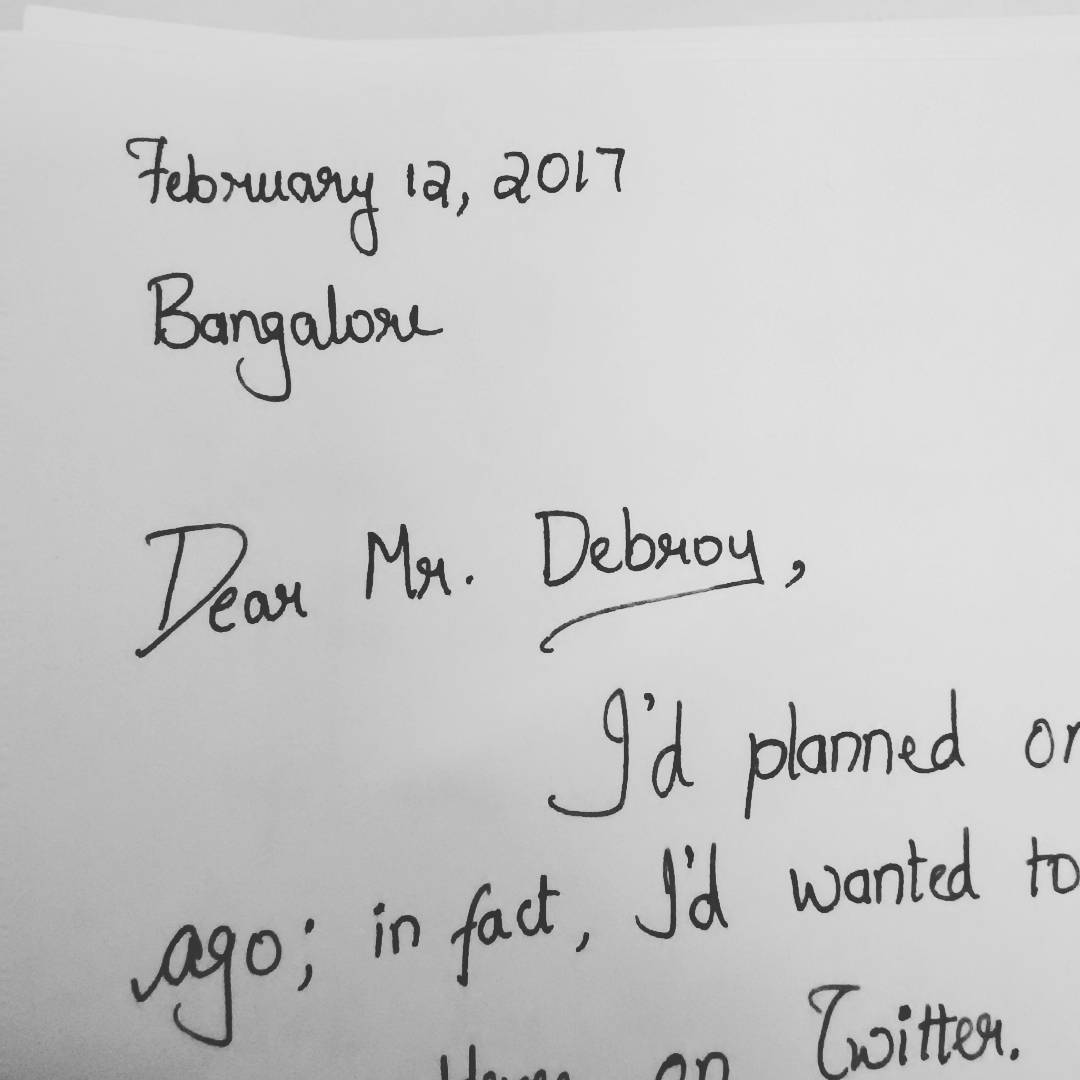 February 12, 2017
Bangalore
Dear Mr. Debroy,
I'd planned
ago; in fact, I'd wanted to
on Twitter.